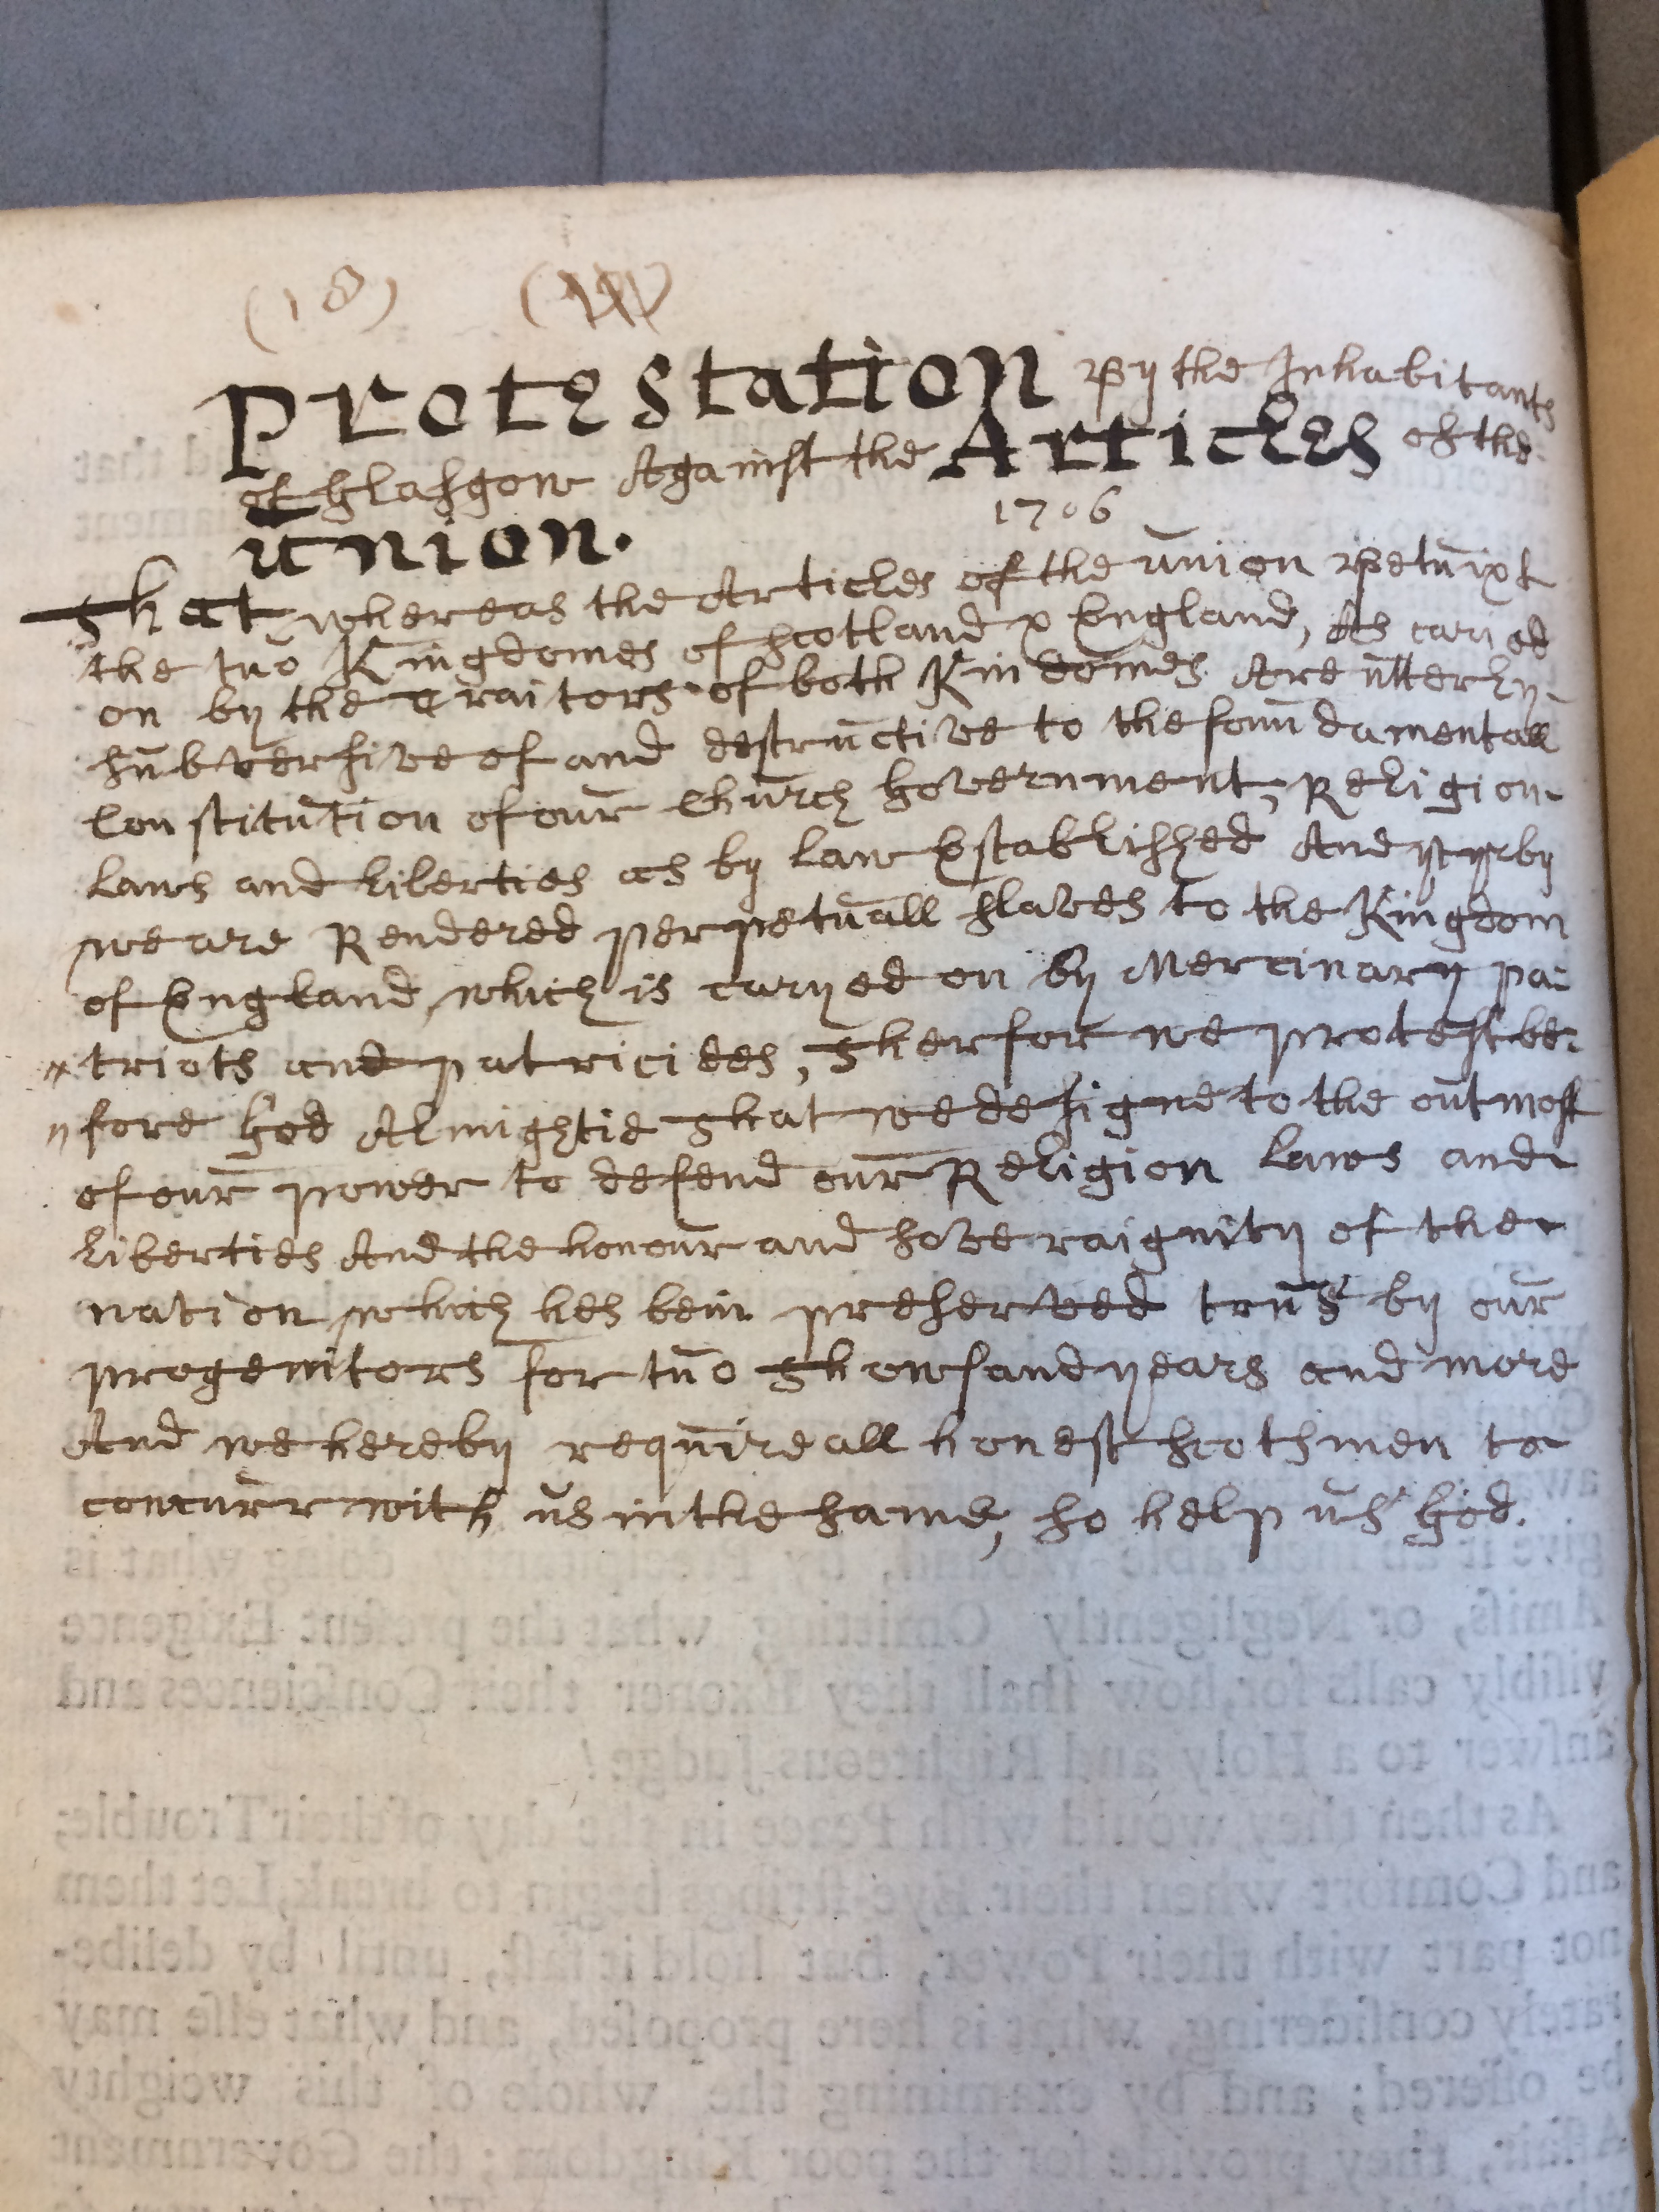 (18)
Protestation By the Inhabitants
of Glasgow Against the Articles of the
Union. 1706
That whereas the Articles of the union Betuixt
the tuo Kingdomes of Scotland & England, As caried
on by the Traitors of both Kindomes Are utterly
subversive of and destructive to the foundamentall
Constitution of our Church Government, Religion
Laws and Liberties as by Law Established And yrby
we are Rendered perpetuall slaves to the Kingdom
of England, which is caryed on By Mercinary pa:
triots and patricides, Therfor we protest be:
fore God Almightie That we designe to the outmost
of our power to defend our Religion Laws and
Liberties And the honour and soveraignity of the
nation which hes bein preserved to us by our
progenitors for tuo Thowsand years and more
And we hereby require all honest Scotsmen to
concurr with us in the same, so help us God.
Amiſs, or Negligently Omitting, what the preſent Exigence
viſibly calls for, how ſhall they Exoner their Conſciences and
anſwer to a Holy and Righteous Judge!
As then they would wiſh Peace in the day of their Trouble;
and Comfort when their Eye-ſtrings begin to break, Let them
not part with their Power, but hold it faſt, until by delibe-
rately conſidering, what is here propoſed, and what elſe may
be offered; and by examining the whole of this weighty
Affair, they provide for the poor Kingdom; the Government